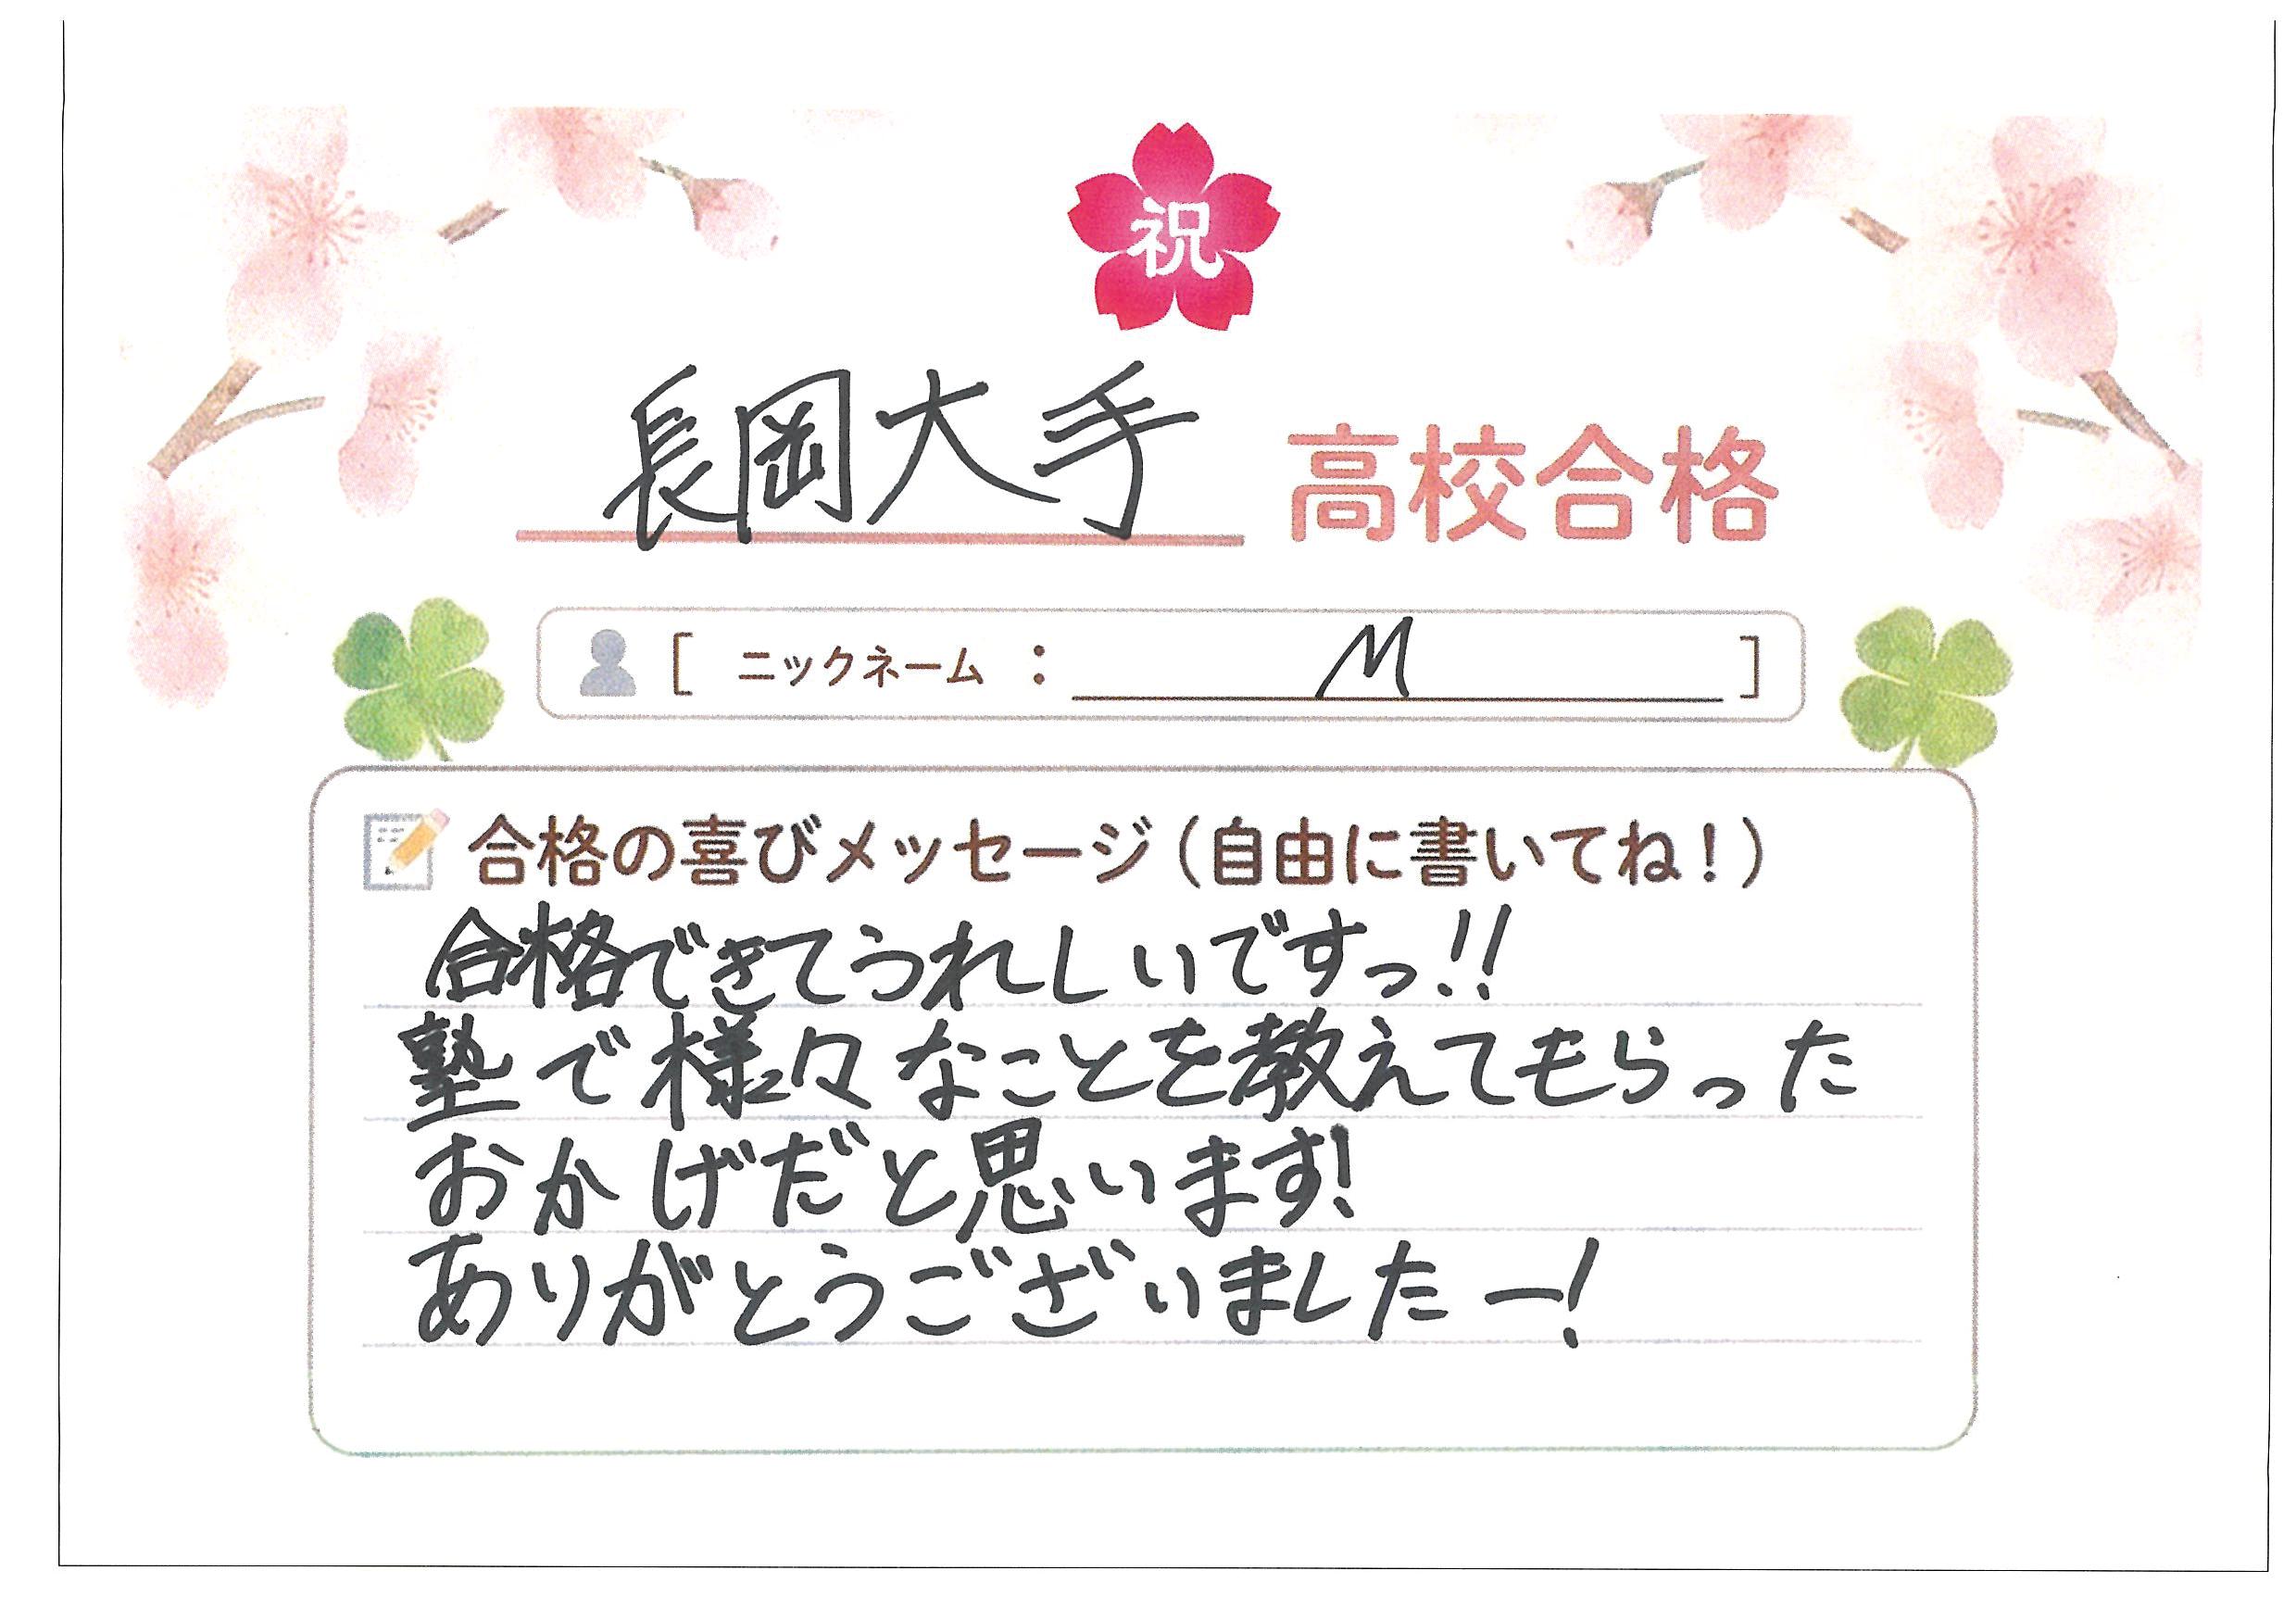 祝
長岡大手 高校合格
[ ニックネーム : M ]
合格の喜びメッセージ(自由に書いてね!)
合格できてうれしいですっ!!
塾で様々なことを教えてもらった
おかげだと思います!
ありがとうございましたー!